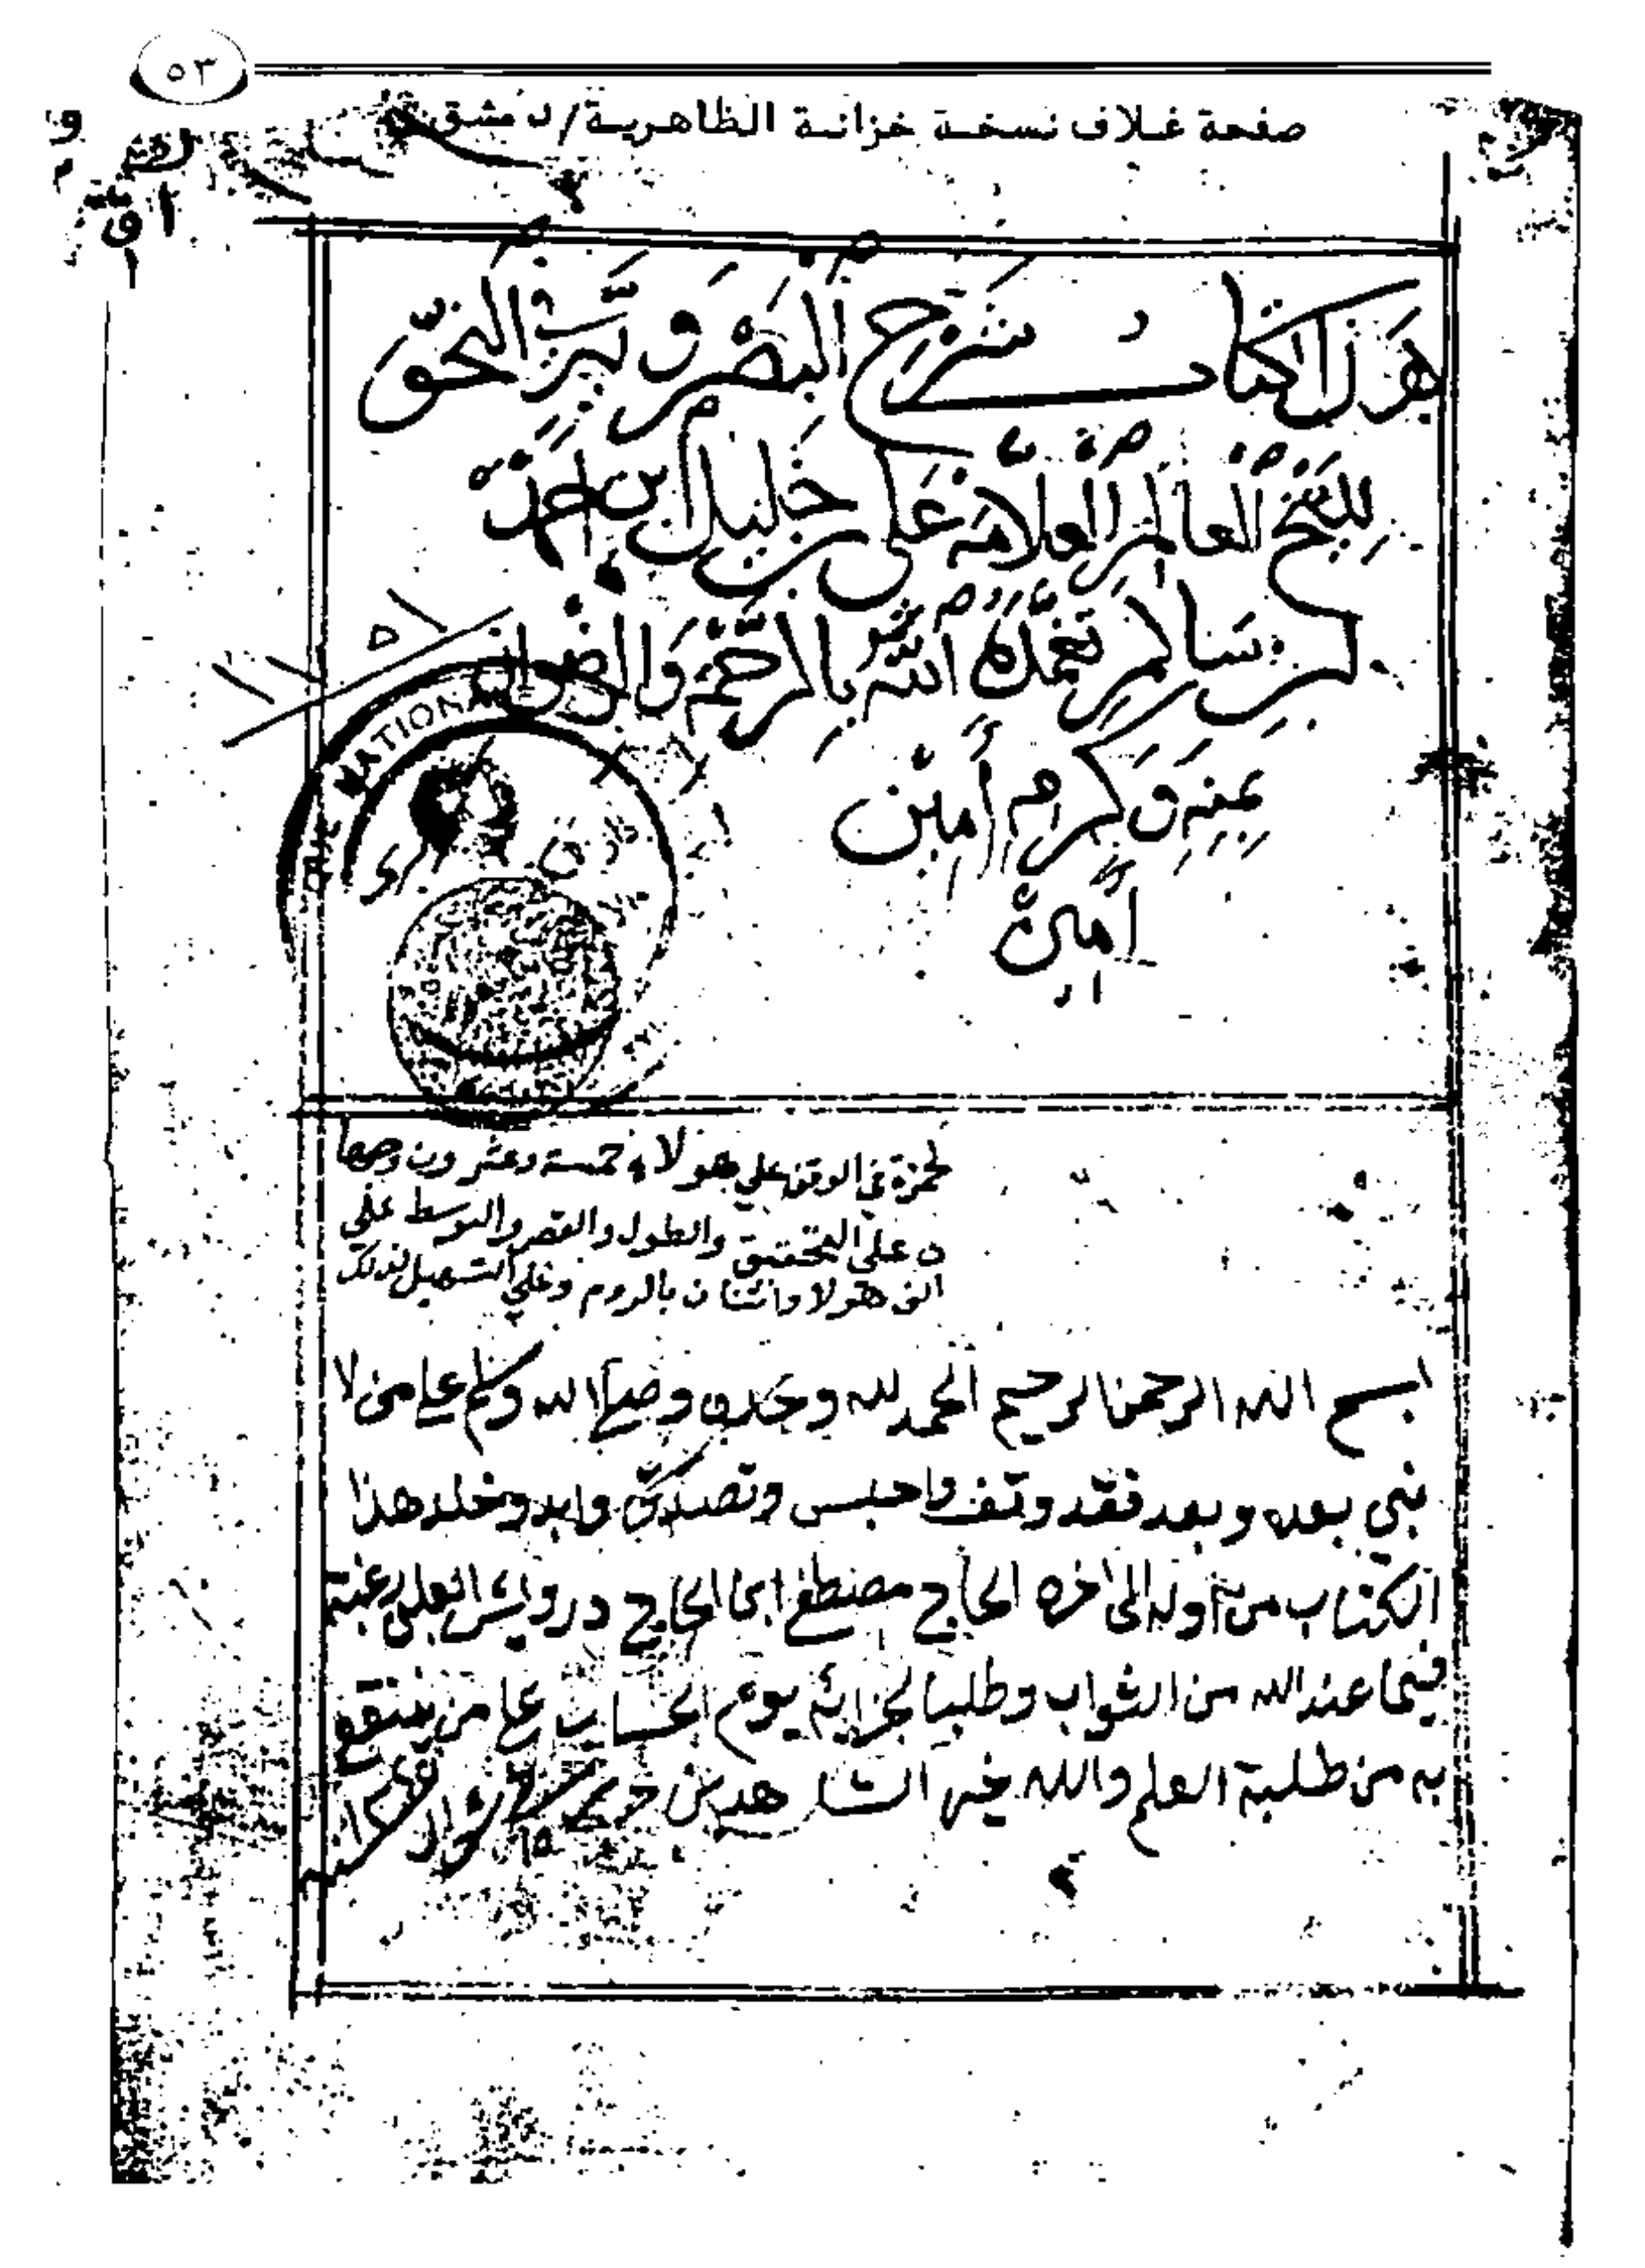 ٥٣
صفحة غلاف نسخة خزانة الظاهرية/دمشق
هَذا كتاب شرح البصروية في النحو
للشيخ العالم العلامة على خليل ابن احمد
بن سالم تغمده الله بالرحمة والرضوان
بمنه وكرمه أمين
امين
NATIONALE
لحمزة في الوقف علي هولاء خمسة وعشرون وجها
علي التحقيق والطول والقصر والتوسط علي
الف هولا واثنان بالروم وعلي التسهيل لذلك
بسم الله الرحمن الرحيم الحمد لله وحده وصلى الله وسلم على من لا
نبي بعده وبعد فقد وقف واحبس وتصدق وابد وخلد هذا
الكتاب من أوله الى اخره الحاج مصطفى ابن الحاج درويش العلبي رغبة
فيما عند الله من الثواب وطلبا لجزايه يوم الحساب على من ينتفع
به من طلبة العلم والله خير الشاهدين شوال